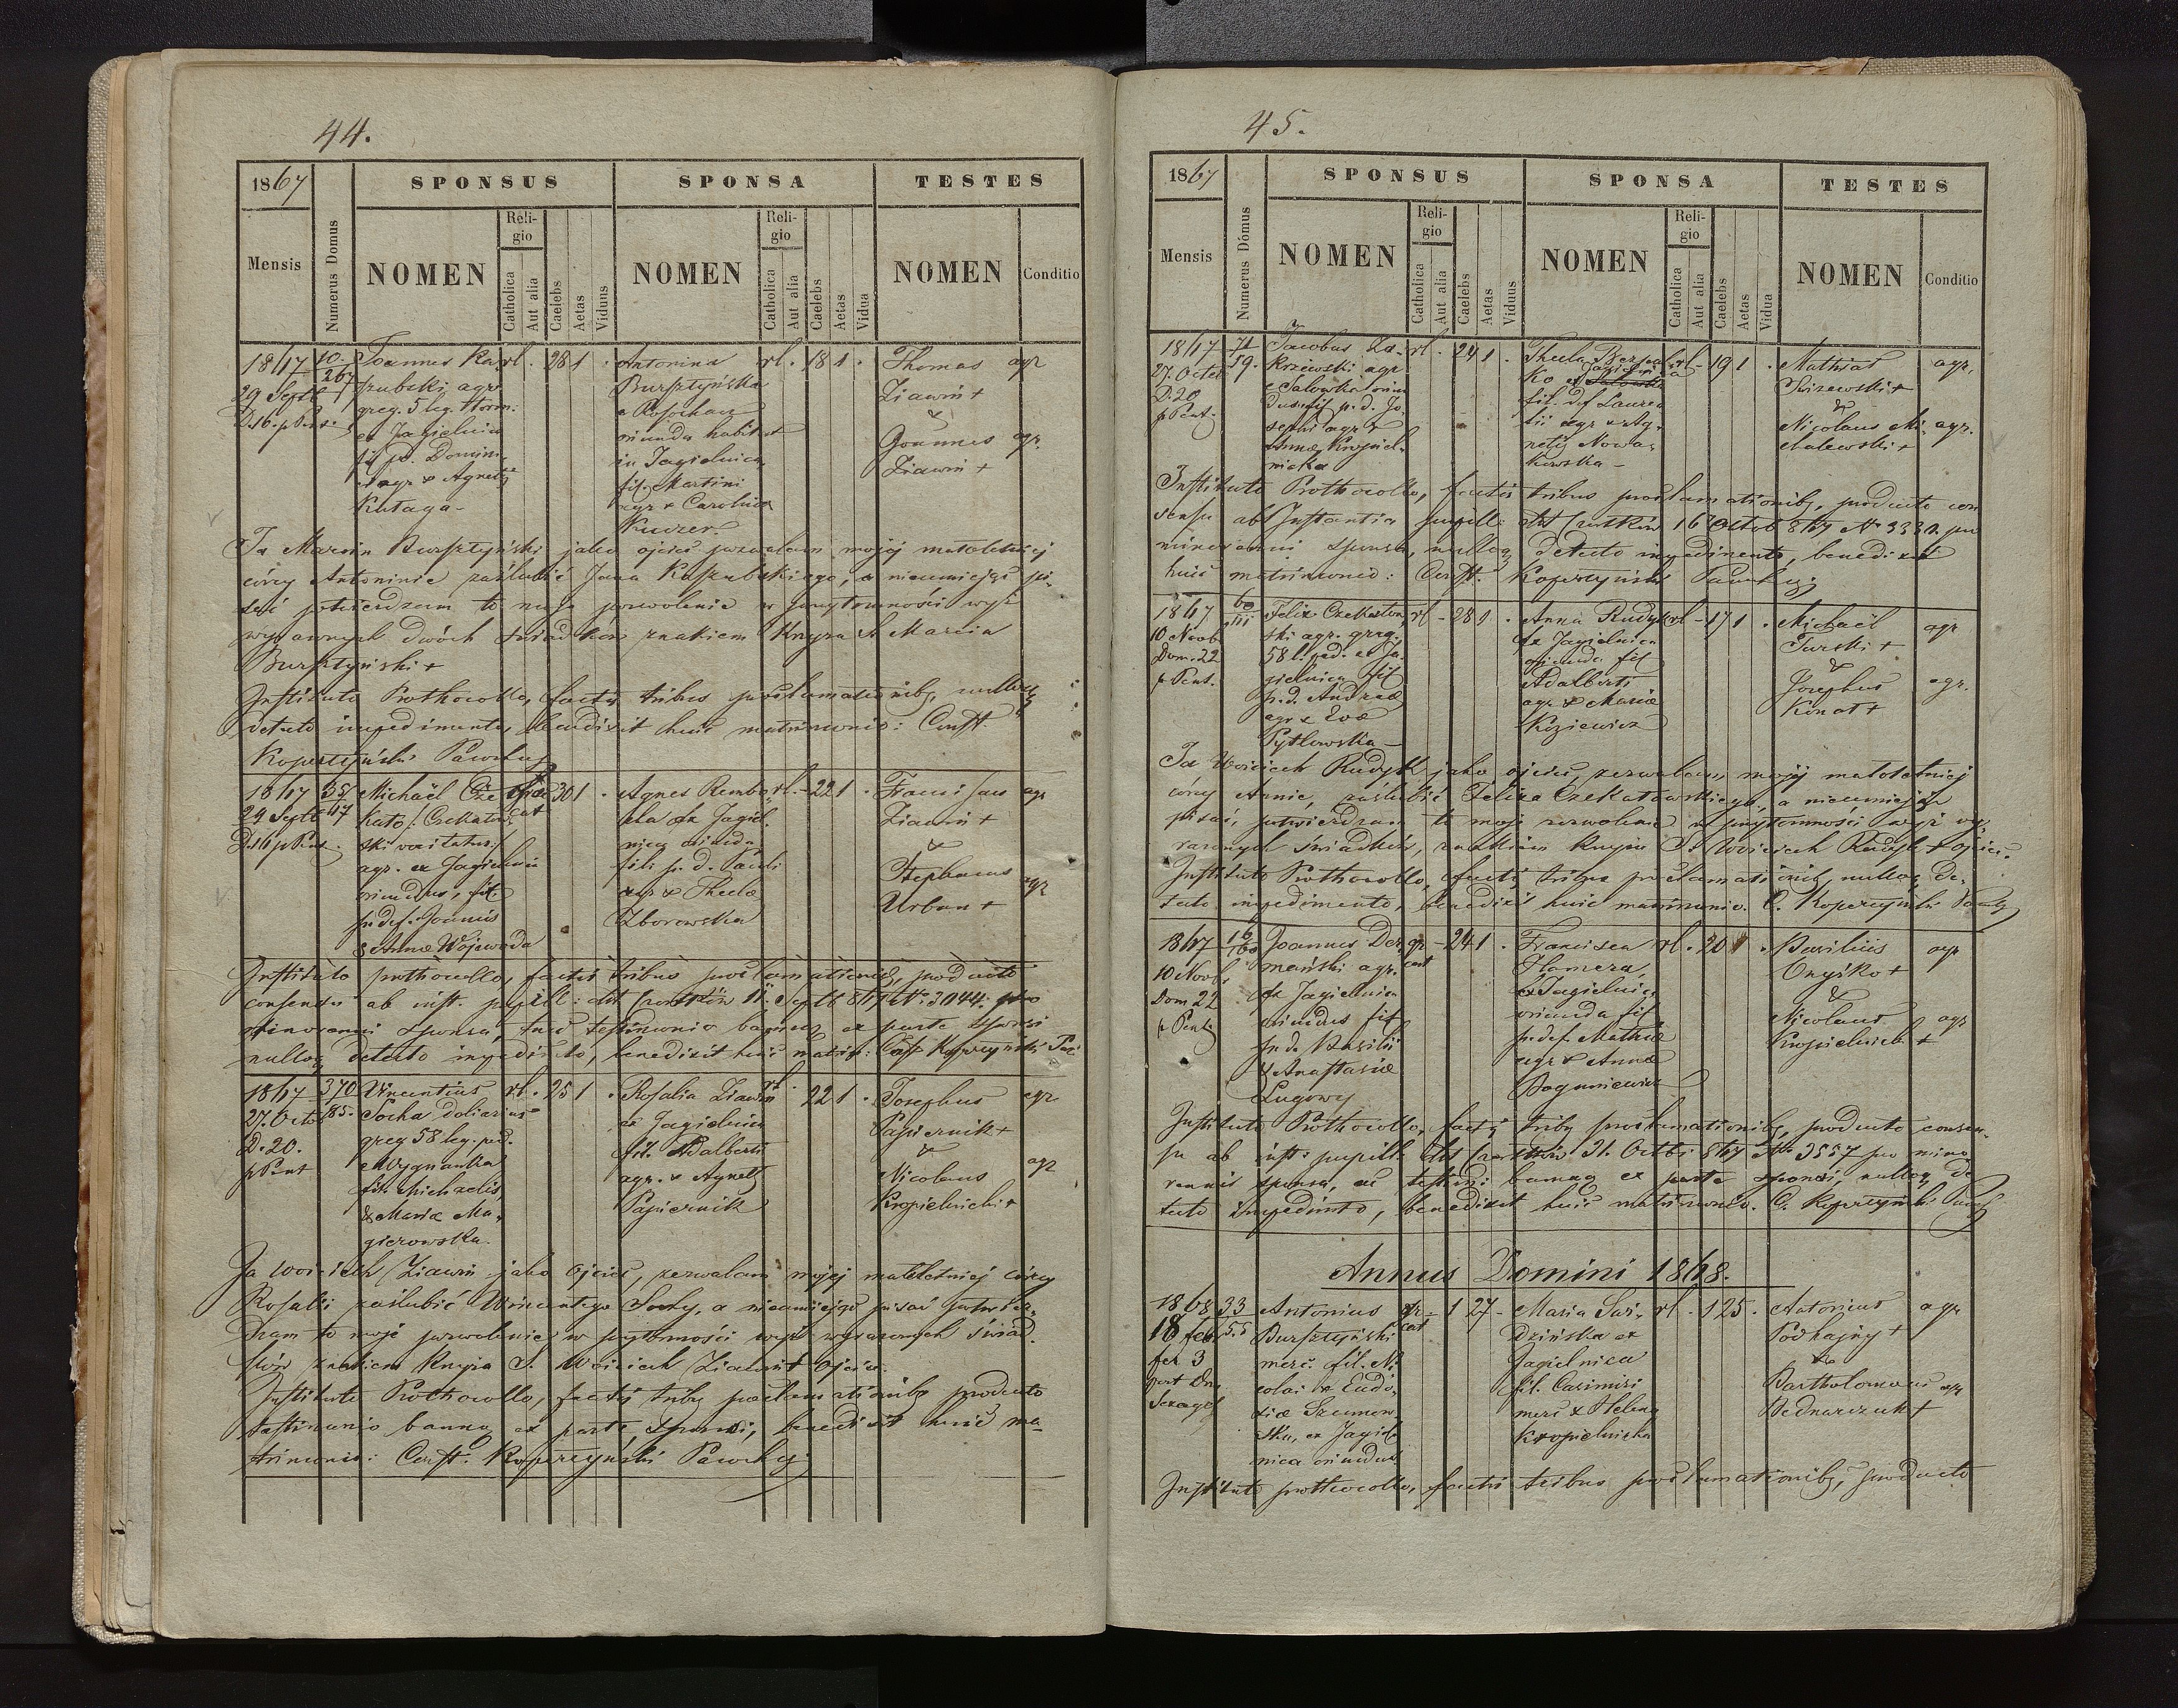 44.
1867
SPONSUS
SPONSA
TESTES
Mensis
Numerus Domus
NOMEN
Religio
Catholica
Aut alia
Caelebs
Aetas
Viduus
NOMEN
Religio
Catholica
Aut alia
Caelebs
Aetas
Vidua
NOMEN
Conditio
1867
29 Septb
D. 16. p Pent.
10.
267
Joannes Ka
szubski agr
greg. 5 leg.
ex Jagielnica
fil. p. d. Domini
ci agr & Agnetis
Kutaga
rl. 28 1
Antonina
Bursztyńska
e Rosochacz
oriunda habitat
in Jagielnica
fil. Martini
agr & Carolina
Kuczer
rl. 18 1
Thomas
Ziawin +
&
Joannes
Ziawin +
agr
agr.
Ja Marcin Bursztyński jako ojciec pozwalam mojej małoletniej
córcy Antoninie zaślubić Jana Kaszubskiego, a nieumiejąc pi-
sać potwierdzam to moje pozwolenie w przytomności wyż
wyrażonych dwóch świadków znakiem Krzyża S. Marcin
Bursztyński +
Instituto Prothocollo, factis tribus proclamationibg, nulloq
detecto impedimento, benedixit huic matrimonio: Const.
Koperczyński Parochus
1867
29 Septb
D. 16 p Pent.
35
117
Michaël Cze
kato: Czekatow
ski vocitatus
agr. ex Jagielnica
oriundus, fil
p. def. Joannis
& Annæ Wojewoda
græ
cat
30 1
Agnes Rembo
ła ex Jagiel
nica oriunda
filia p. d. Pauli
agr & Thecla
Zborowska
rl. 22 1
Franciscus
Ziawin +
&
Stephanus
Urban +
agr
agr
Instituto prothocollo, factis tribus proclamationibg, producto
consensu ab inst. pupill: dtt Czortków 11. Septb 867 N. 3044. pro
minorenni sponsa, tum testimonio bannor ex parte sponsi
nulloq detecto impedimto, benedixit huic matrim: Const Koperczyński Par:
1867
27. Octob
D. 20.
p Pent
370
85.
Vincentius
Socha doliarius
greg 58 leg. ped.
e Wygnanka
fil. Michaelis
& Mariæ Ma-
gierowska.
rl. 25 1
Rosalia Ziawin
ex Jagielnica
fil. Adalberti
agr. & Agnetis
Papiernik
rl. 22 1
Josephus
Papiernik +
&
Nicolaus
Kropielnicki +
agr
agr
Ja Wojciech Ziawin jako ojciec, zezwalam mojej małoletniej córcy
Rosalii zaślubić Wincentego Sochy, a nieumiejąc pisać potwier-
dzam to moje pozwolenie w przytomności wyż wyrażonych świad-
ków znakiem Krzyża S. Wojciech Ziawin + ojciec.
Instituto Prothocollo, factis tribg proclamationibg producto
testimonio bannor ex parte sponsi, benedixit huic ma-
trimonio: Const. Koperczyński Parochus
45.
1867
SPONSUS
SPONSA
TESTES
Mensis
Numerus Domus
NOMEN
Religio
Catholica
Aut alia
Caelebs
Aetas
Viduus
NOMEN
Religio
Catholica
Aut alia
Caelebs
Aetas
Vidua
NOMEN
Conditio
1867
27. Octob
D. 20
p Pent.
71
59.
Jacobus Za-
krzewski agr
e Salowka oriun
dus fil p. d. Jo
sephi agr &
Annæ Kropiel-
nicka
rl. 24 1
Thecla
ko ex Jagielnica
fil. def Lauren
tii agr & Ag-
netis Nowa-
kowska
rl 19 1
Mathias
&
Nicolaus Mi-
chalewski +
agr.
agr.
Instituto Prothocollo, factis tribus proclamationibg, producto con
sensu ab Instantia pupill: dtt Czortków 16 Octob 867 N. pro
minorenni sponsa, nulloq detecto impedimento, benedixit
huic matrimonio: Const. Koperczyński Parochus
1867
10 Novb
Dom. 22
p Pent.
60
111
Felix Czekatow
ski agr. greg.
58 l. ped. e Ja
gielnica fil
p. d. Andreæ
agr & Eva
Pytlowska
rl - 28 1
Anna Rudyk
ex Jagielnica
oriunda fil
Adalberti
agr & Mariæ
Koziewicz
rl - 17 1
Michaël
Turski +
&
Josephus
Konat +
agr
agr.
Ja Wojciech Rudyk jako ojciec, zezwalam mojej małoletniej
córcy Annie, zaślubić Felixa Czekatowskiego, a nieumiejąc
pisać, potwierdzam to moje zezwolenie w przytomności wyż wy
rażonych świadków, znakiem krzyża S. Wojciech Rudyk + ojciec.
Instituto Prothocollo, factis tribus proclamationibg, nulloq de-
tecto impedimento, benedixit huic matrimonio. C. Koperczyński Parochus
1867
10 Novb
Dom 22
p Pent
16
160
Joannes Der
mański agr.
ex Jagielnica
oriundus fil
p. d. Basilii
& Anastasiæ
Lugowy
gr
cat
24 1
Francisca
Homera,
ex Jagielnica
oriunda fil
p. def. Mathiæ
agr & Annæ
Boguniewicz
rl. 20 1
Basilius
Onyśko +
&
Nicolaus
Kropielnicki +
agr
agr
Instituto Prothocollo, factis tribg proclamationibg, producto consen-
su ab inst. pupill. dtt Czortków 31. Octb: 867 N. 3557 pro mino
rennis sponsa, ac testim: bannor ex parte sponsi, nulloq de
tecto impedimto, benedixit huic matrimonio. C. Koperczyński Paroch
Annus Domini 1868.
1868
18 feb
fer 3
post Dn
Sexages
33
55
Antonius
Bursztyński
merc. fil. Ni
colai & Eudo
xiæ Szumow
ska, ex Jagiel
nica oriundus
gr
cat
1 27
Maria Sa
dzińska ex
Jagielnica
fil. Casimiri
merc & Helena
Kropielnicka
rl. 1 25
Antonius
Podhajny +
&
Bartholomæus
Bednarczuk +
agr
agr
Instituto prothocollo, factis tribus proclamationibg, producto